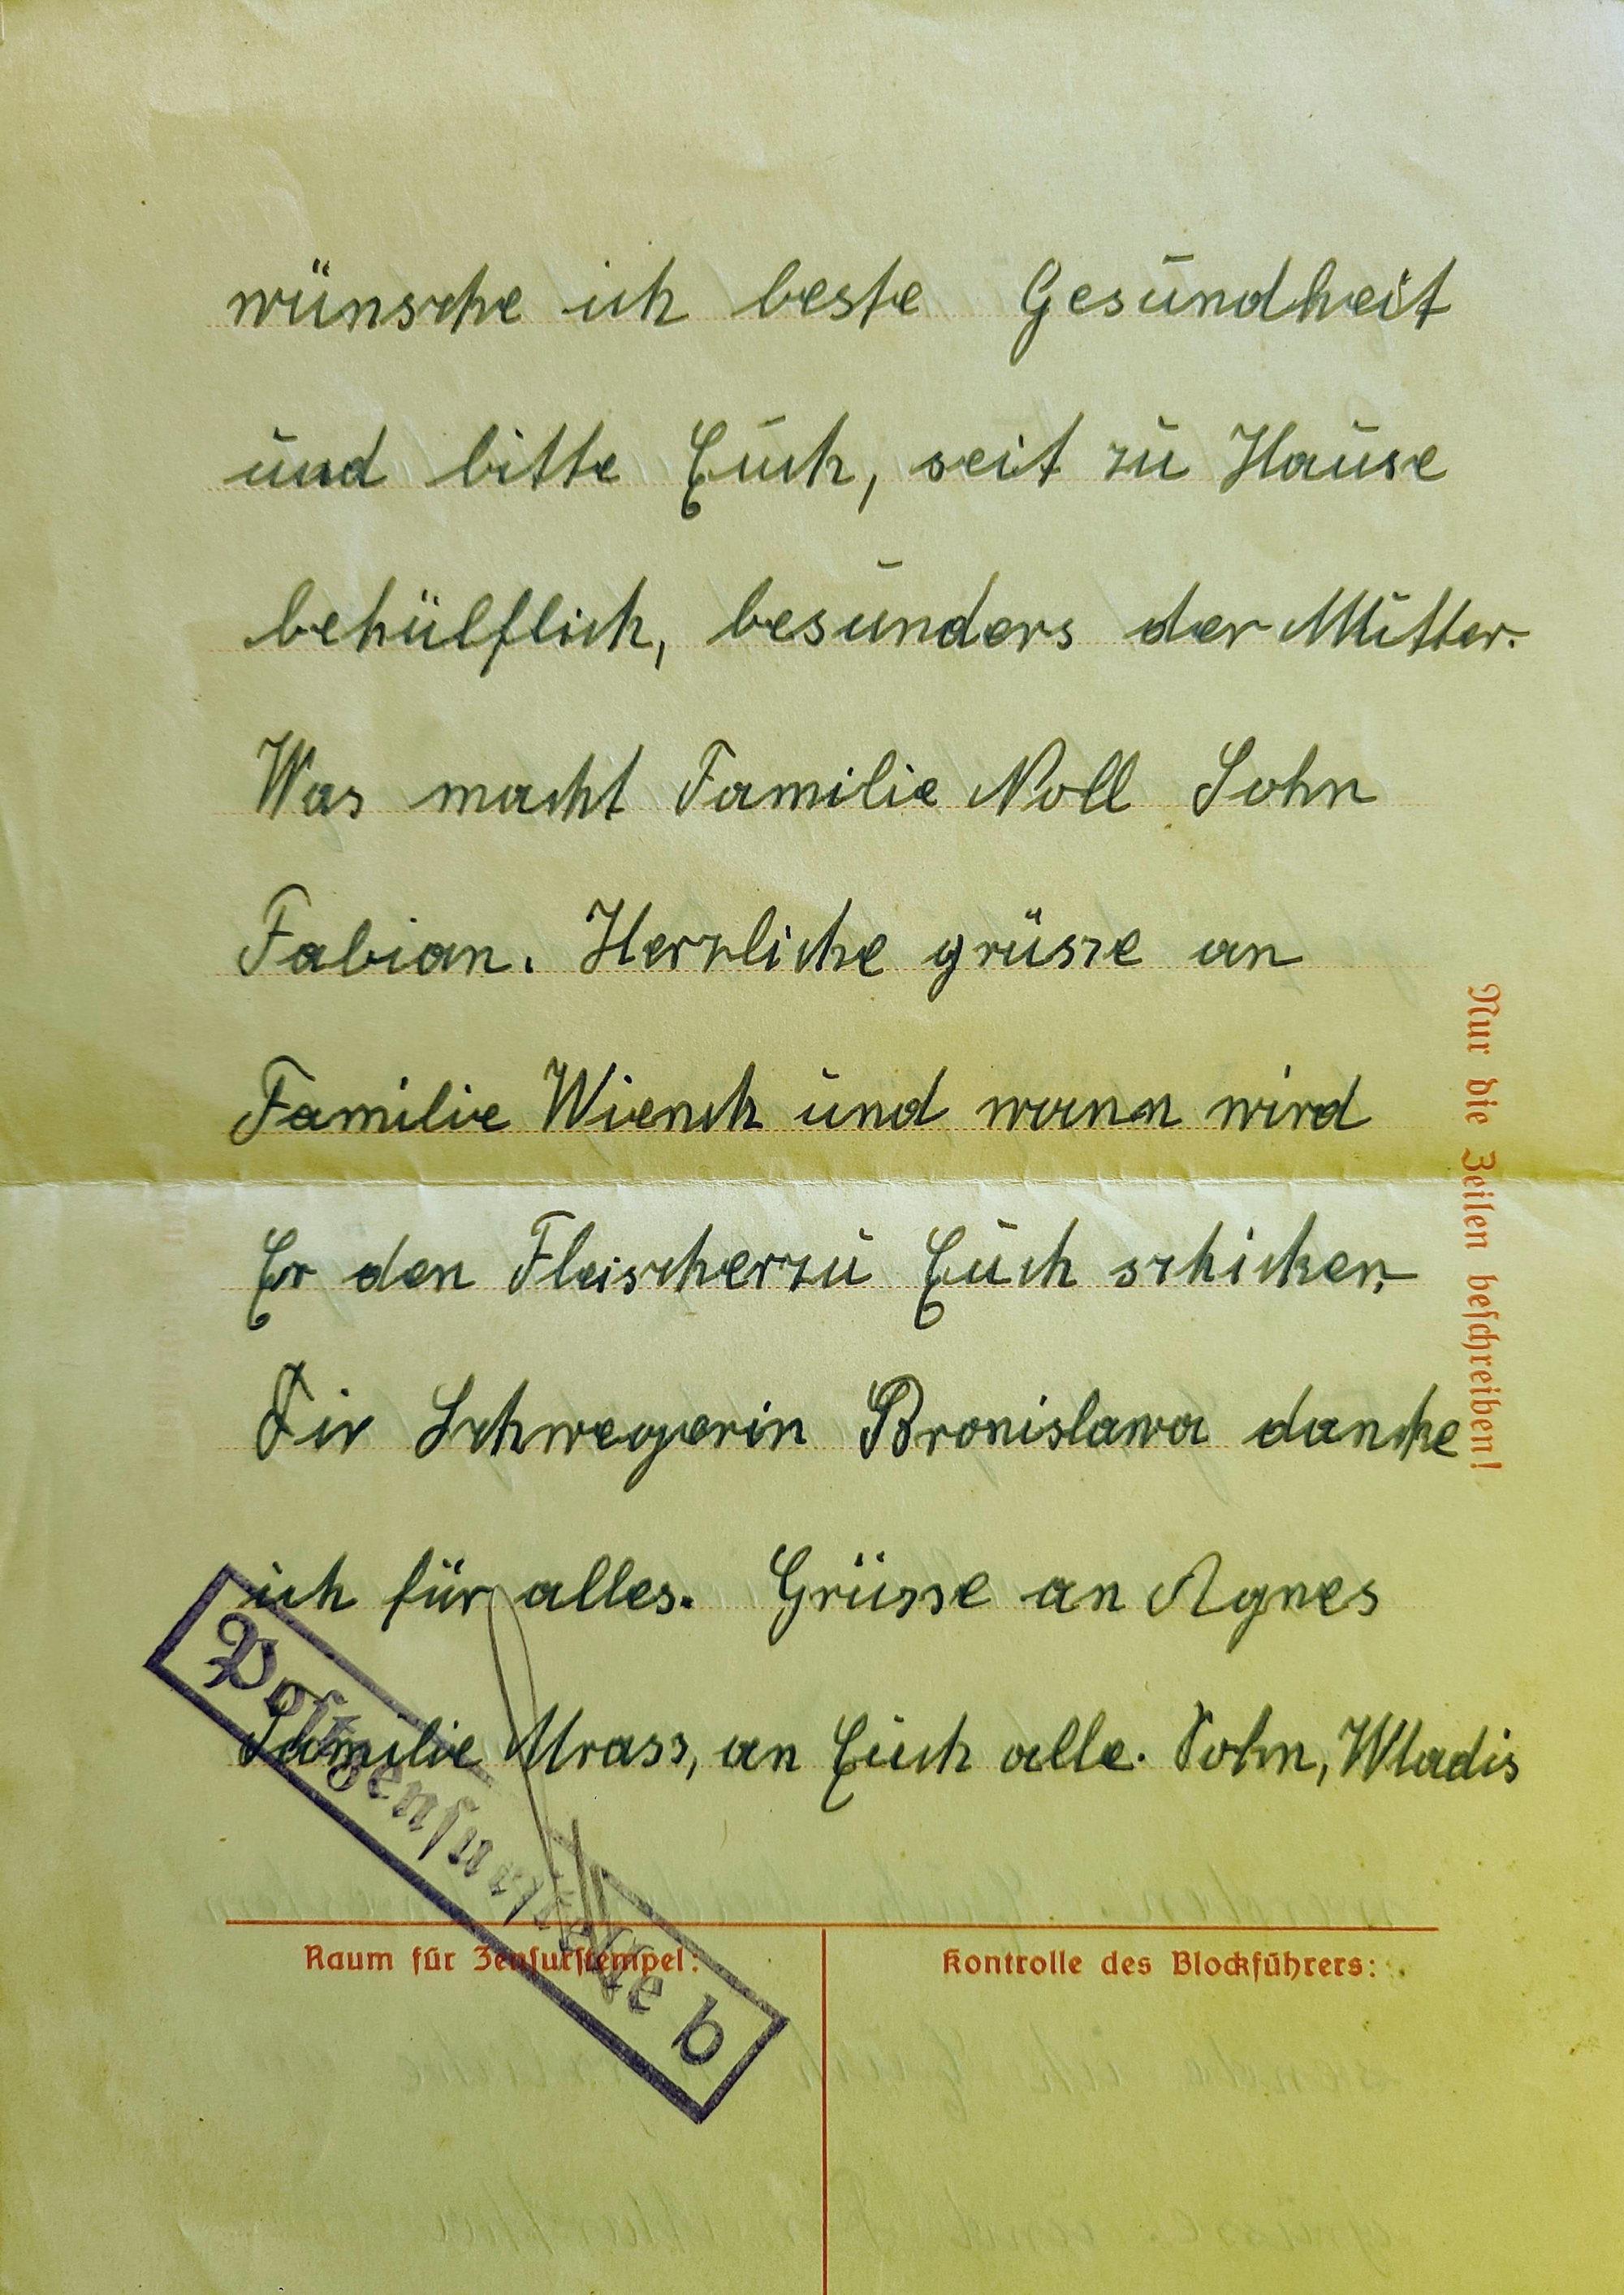 wünsche ich beste Gesundheit
und bitte Euch, seit zu Hause
behülflich, besunders der Mutter.
Was macht Familie Noll Sohn
Fabian. Herzliche grüsse an
Familie Wienck und wann wird
Er den Fleischer zu Euch schicken,
Dir Schwegerin Bronislawa dancke
ich für alles. Grüsse an Agnes
Familie Mrass, an Euch alle. Sohn, Wladis
Nur die Zeilen beschreiben!
Postzensurstelle b
Raum für Zensurstempel:
Kontrolle des Blockführers: